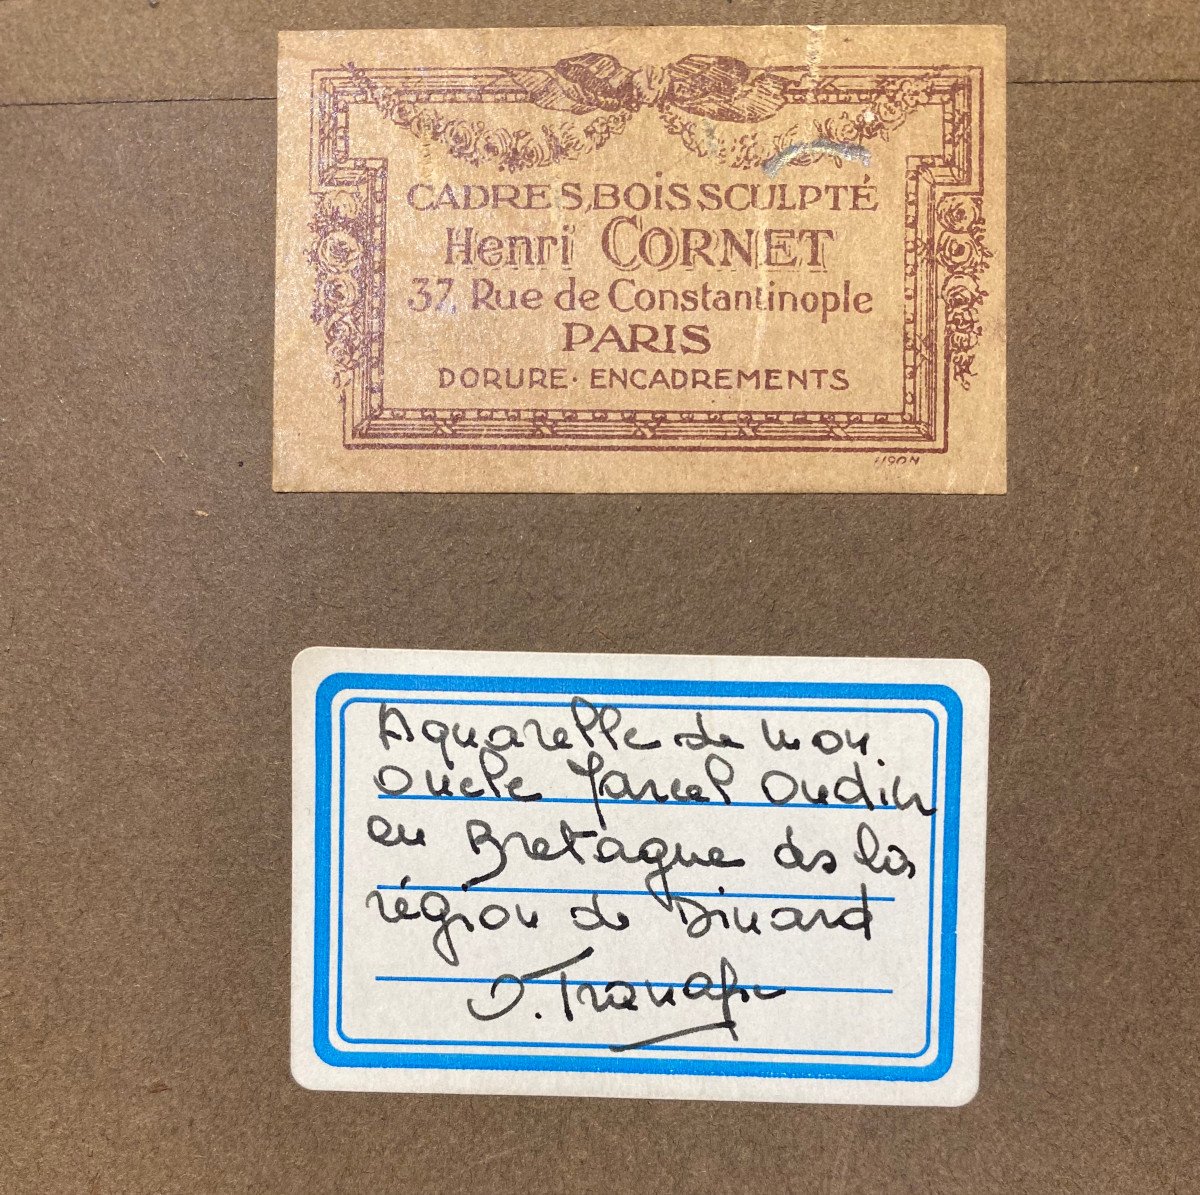 CADRES, BOIS SCULPTÉ
Henri CORNET
37, Rue de Constantinople
PARIS
DORURE · ENCADREMENTS
Aquarelle de mon
oncle Marcel Oudin
en Bretagne ds la
région de Dinard